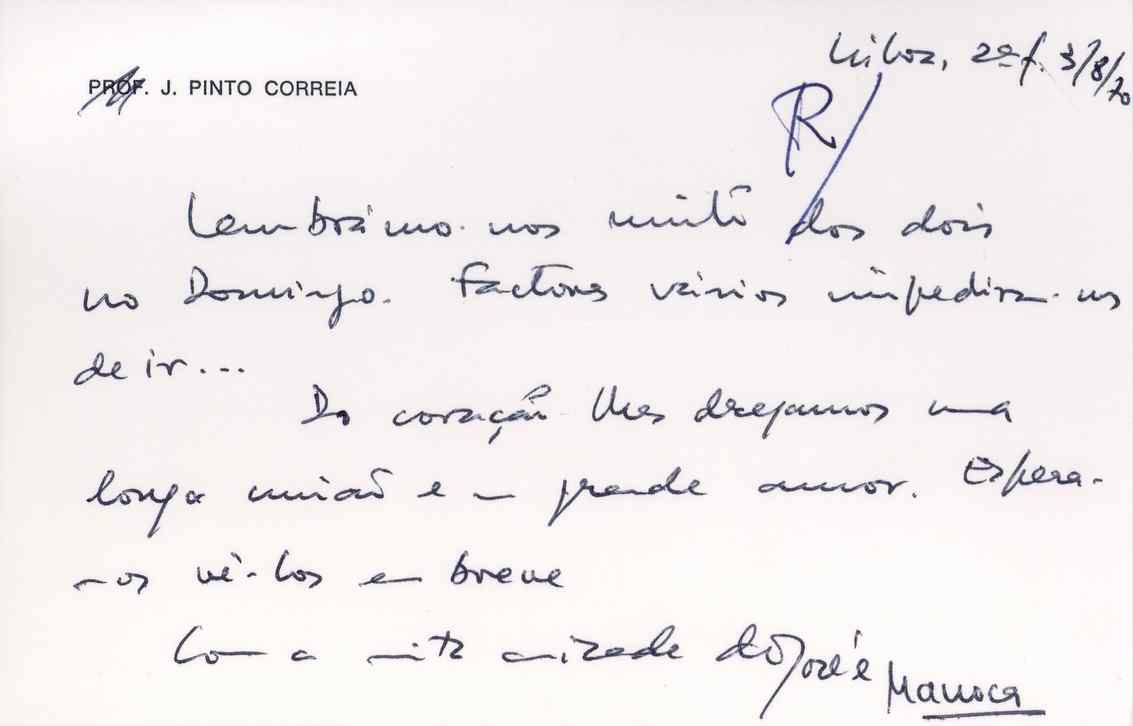 Lisboa, 2ª f. 3/8/70
PROF. J. PINTO CORREIA
R
Lembrámo-nos muito dos dois
no Domingo. Factores vários impediram-nos
de ir...
Do coração lhes desejamos uma
longa união e um grande amor. Espera-
mos vê-los em breve
Com a muita amizade do José
Manoca